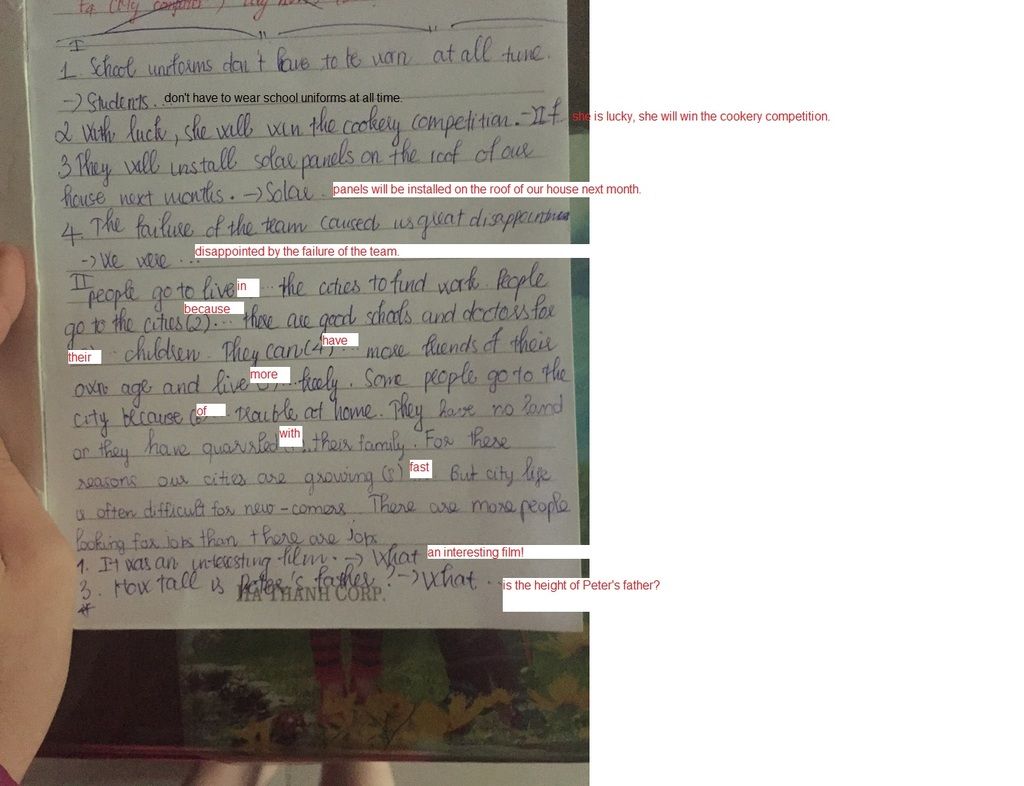 I
1. School uniforms don't have to be worn at all time.
-> Students... don't have to wear school uniforms at all time.
2 With luck, she will win the cookery competition. -> If she is lucky, she will win the cookery competition.
3 They will install solar panels on the roof of our
house next months. -> Solar... panels will be installed on the roof of our house next month.
4. The failure of the team caused us great disappointment
-> We were ... disappointed by the failure of the team.
II
people go to live in ... the cities to find work. People
go to the cities (2) because ... there are good schools and doctors for
their ... children. They can (4) have ... more friends of their
own age and live more ... freely. Some people go to the
city because of ... trouble at home. They have no land
or they have quarrsled with ... their family. For these
reasons our cities are growing (8) fast But city life
is often difficult for new-comers There are more people
looking for jobs than there are jobs
1. It was an interesting film. -> What an interesting film!
3. How tall is Peter's father? -> What ... is the height of Peter's father?
HA THANH CORP.